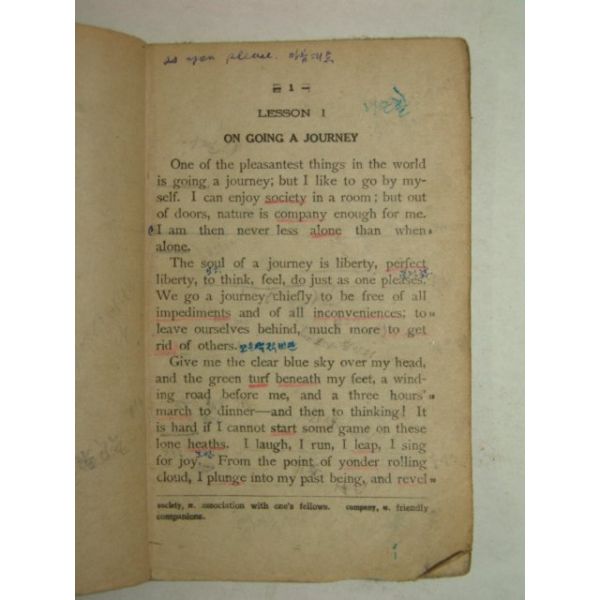 as you please. 마음대로
1
LESSON 1
ON GOING A JOURNEY
One of the pleasantest things in the world
is going a journey; but I like to go by my-
self. I can enjoy society in a room; but out
of doors, nature is company enough for me.
I am then never less alone than when
alone.
The soul of a journey is liberty, perfect
liberty, to think, feel, do just as one pleases.
We go a journey chiefly to be free of all
impediments and of all inconveniences; to
leave ourselves behind, much more to get
rid of others.
Give me the clear blue sky over my head,
and the green turf beneath my feet, a wind-
ing road before me, and a three hours'
march to dinner—and then to thinking! It
is hard if I cannot start some game on these
lone heaths. I laugh, I run, I leap, I sing
for joy. From the point of yonder rolling
cloud, I plunge into my past being, and revel
society, n. association with one's fellows. company, n. friendly
companions.